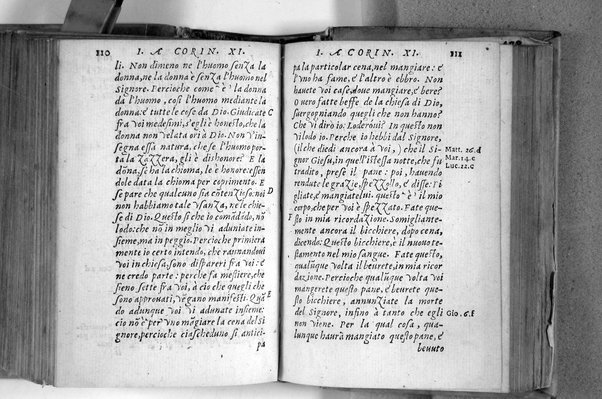 110 I. A CORIN. XI.
li. Non dimeno ne l'huomo senza la
donna, ne la donna è senza l'huomo nel
Signore. Percioche come è la donna
da l'huomo, così l'huomo mediante la
donna: e tutte le cose da Dio. Giudicate C
fra voi medesimi, s'egli è honesto, che la
donna non velata ori à Dio. Non v'in
segna essa natura, che se l'huomo por-
ta la Zazzera, gli è dishonore? E la
dōna, se ha la chioma, le è honore: essen
dole data la chioma per coprimento. E
se pare che qualcuno sia cōtenzioso: noi D
non habbiamo tale vsanza, ne le chie-
se di Dio. Questo sì che io comādādo, nō
lodo: che nō in meglio vi aduniate in-
sieme, ma in peggio. Percioche primiera
mente io certo intendo, che raunandoui
voi in chiesa, sono dispareri fra voi: e
ne credo parte: perche fa mestiere, che
sieno sette fra voi, à cio che quegli che
sono approuati, vēgano manifesti. Quā E
do adunque voi vi adunate insieme:
cio nō è per vno māgiare la cena del Si
gnore, percioche ciascheduno si antici-
pa
I. A CORIN. XI. 111
pa la particolar cena, nel mangiare: e
l'vno ha fame, e l'altro è ebbro. Non
hauete voi case, doue mangiare, e bere?
O vero fatte beffe de la chiesa di Dio,
suergognando quegli che non hanno?
Che vi dirò io: Loderoui? In questo non
vi lodo io. Perche io hebbi dal Signore,
(il che diedi ancora à voi,) che il Si- Matt. 26.d
gnor Giesu, in quell'istessa notte, che fu Mar. 14.c
tradito, prese il pane: poi, hauendo Luc. 22.c
rendute le grazie, spezzollo, e disse: Pi
gliate, e mangiatelui. questo è il mio
corpo, che per voi è spezzato. Fate que-
F sto in mia ricordazione. Somigliante-
mente ancora il bicchiere, dopo cena,
dicendo: Questo bicchiere, è il nuouo te-
stamento nel mio sangue. Fate questo,
qualūque volta il beurete, in mia ricor
dazione. Percioche qualūque volta voi
mangerete questo pane, e beurete que-
sto bicchiere, annunziate la morte
del Signore, insino à tanto che egli Gio. 6.f
non viene. Per la qual cosa, qua-
lunque haurà mangiato questo pane, è
beuuto